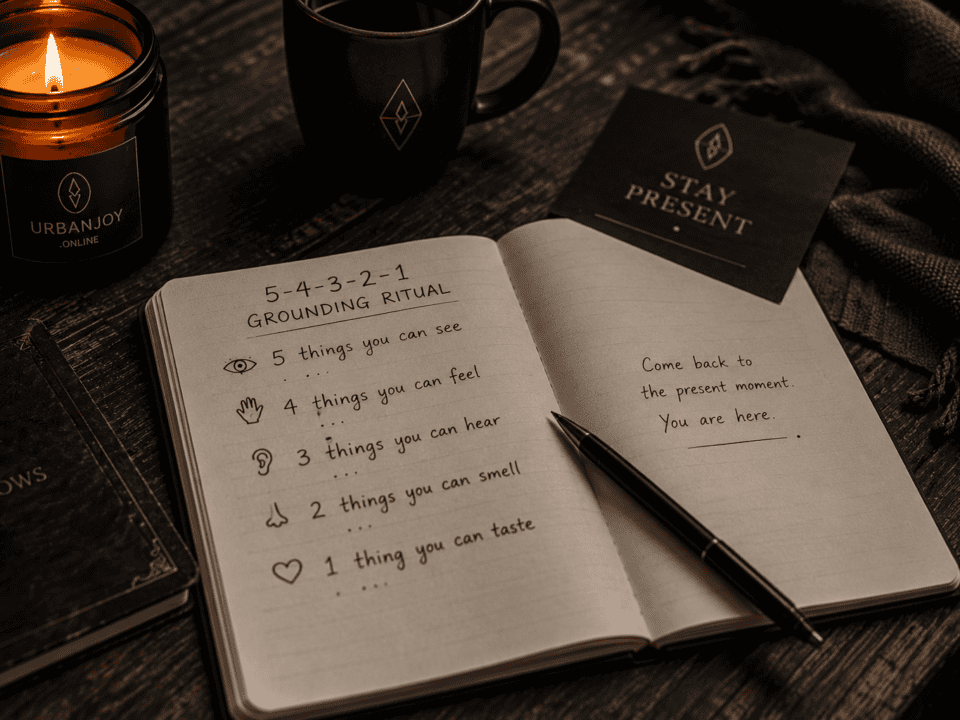 URBANJOY
.ONLINE
STAY
PRESENT
5-4-3-2-1
GROUNDING RITUAL
5 things you can see
4 things you can feel
3 things you can hear
2 things you can smell
1 thing you can taste
Come back to
the present moment.
You are here.
OWS